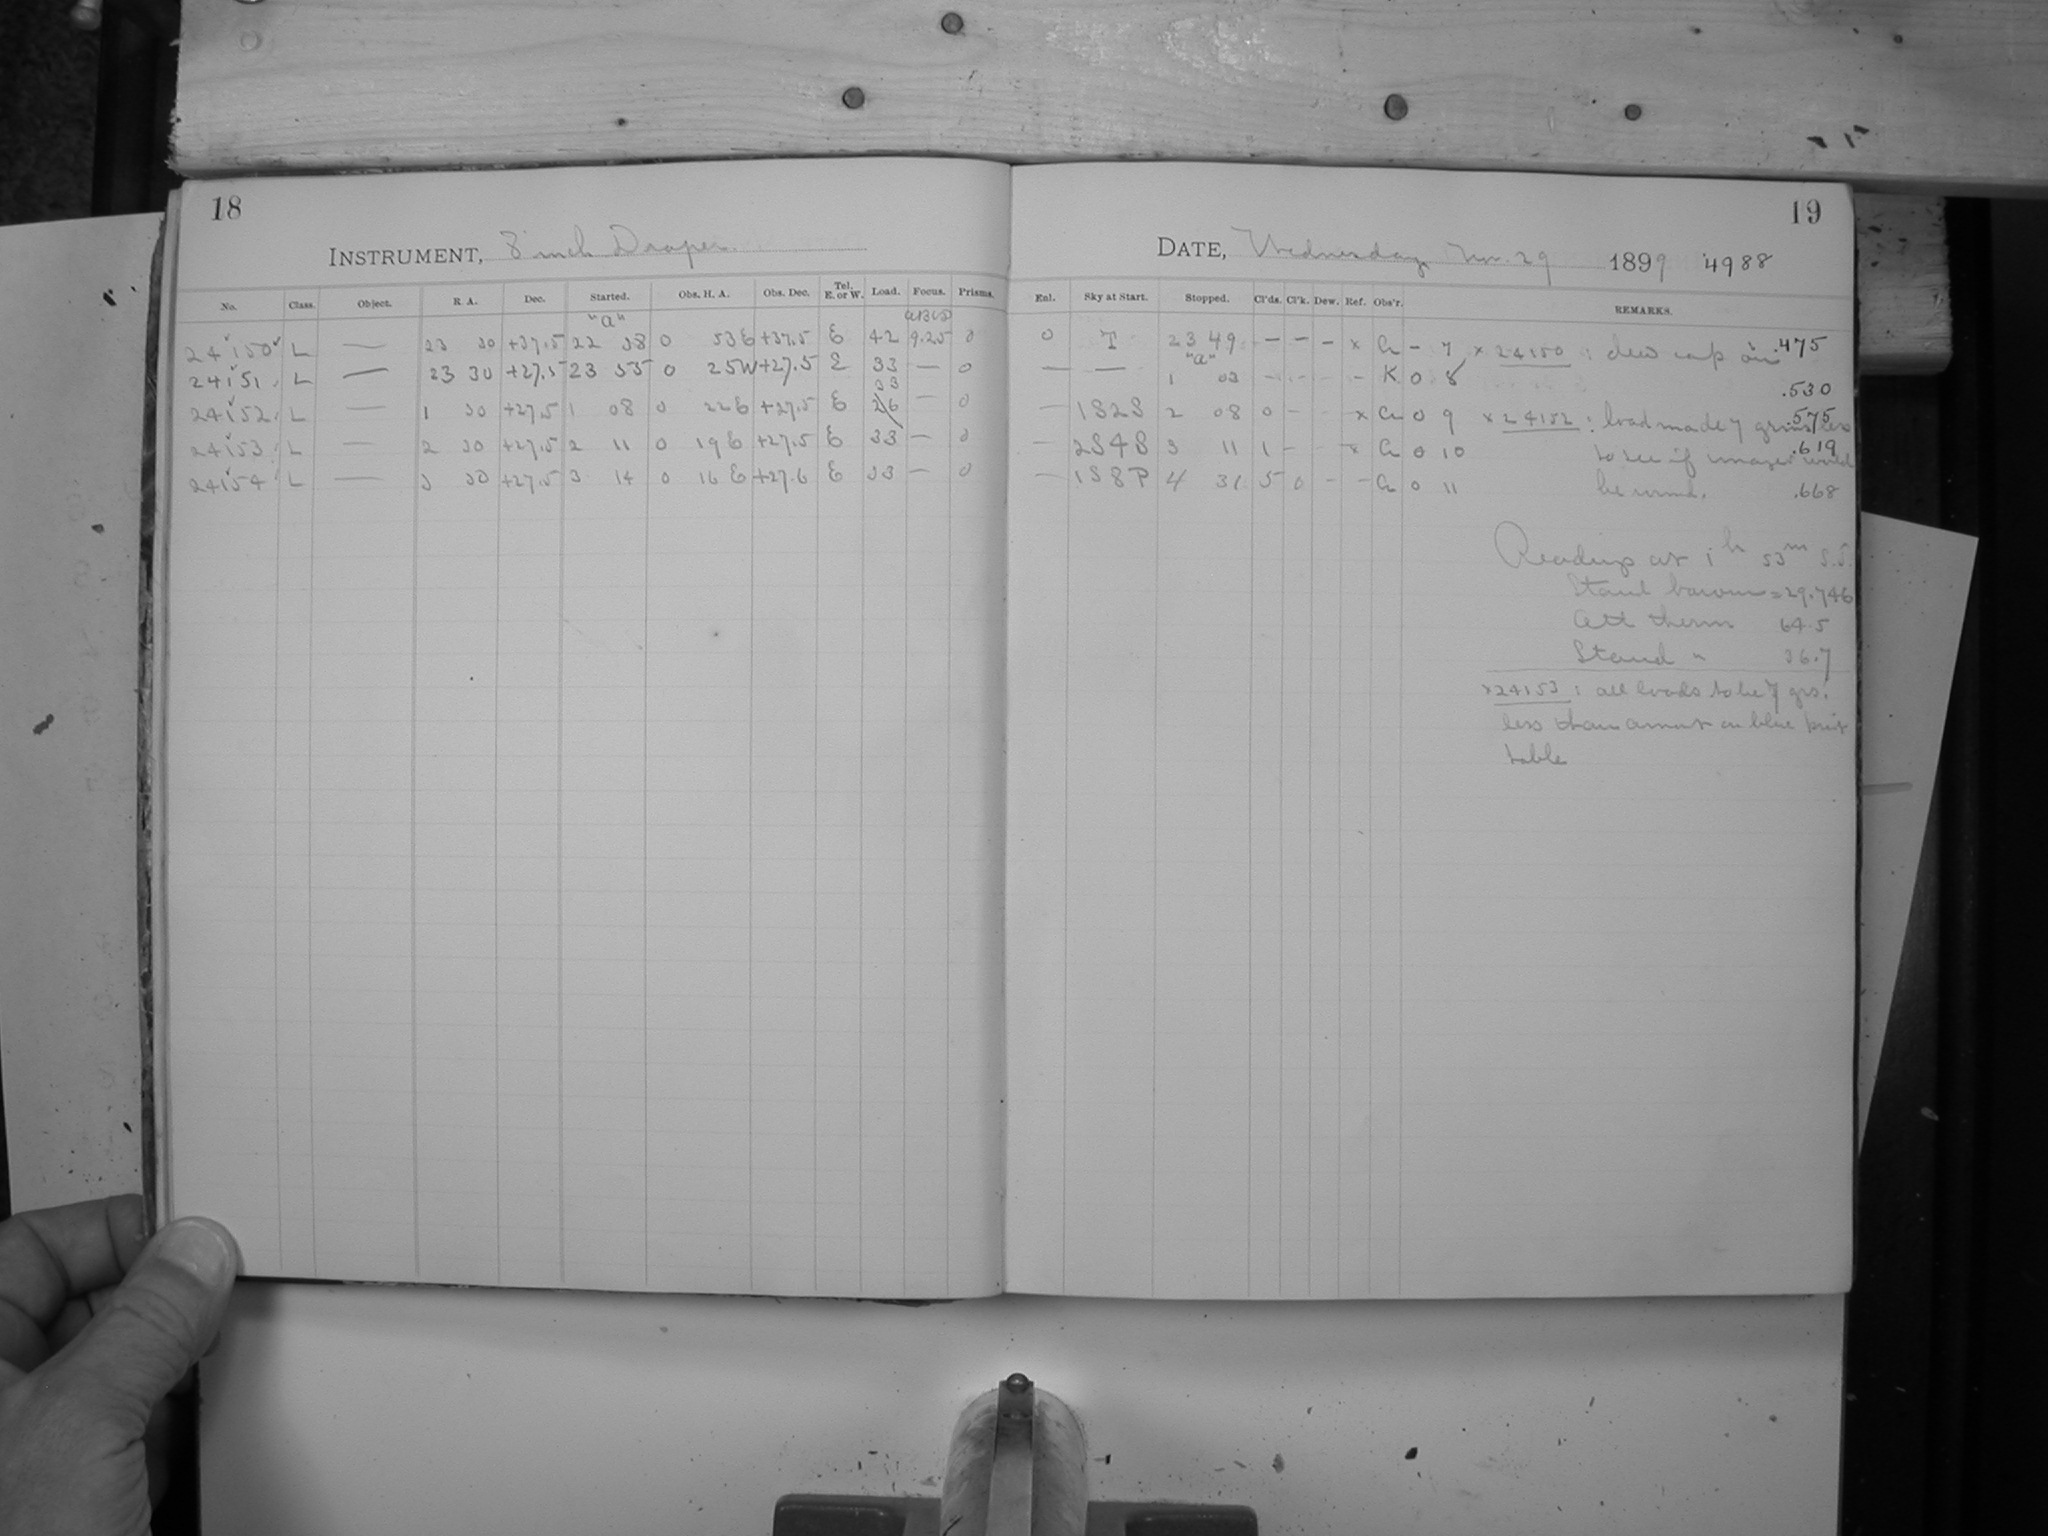 18
INSTRUMENT, 8 inch Draper.
No. Class. Object. R. A. Dec. Started. Obs. H. A. Obs. Dec. Tel. E. or W. Load. Focus. Prisms.
"a"
24150 L — 23 30 +37.5 22 58 0 53E +37.5 E 42 9.25 0
24151 L — 23 30 +27.5 23 55 0 25W +27.5 E 33 — 0
33
24152 L — 1 30 +27.5 1 08 0 22E +27.5 E 26 — 0
24153 L — 2 30 +27.5 2 11 0 19E +27.5 E 33 — 0
24154 L — 3 30 +27.5 3 14 0 16E +27.6 E 33 — 0
19
DATE, Wednesday Nov. 29 1899 4988
Enl. Sky at Start. Stopped. Cl'ds. Cl'k. Dew. Ref. Obs'r. REMARKS.
0 T 23 49 — — — x — 7 x 24150 : dew cap on .475
"a"
— — 1 03 - - - - K 0 8 .530
— 1S2S 2 08 0 - - x 0 9 x 24152 : load made 7 grms less .575
— 2S4S 3 11 1 - - x 0 10 to see if images would .619
— 1S8P 4 31 5 0 - - 0 11 be round. .668
Readings at 1h 53m S.T.
Stand barom = 29.746
Att therm 64.5
Stand " 36.7
x24153 : all loads to be 7 grs.
less than amount on blue print
table